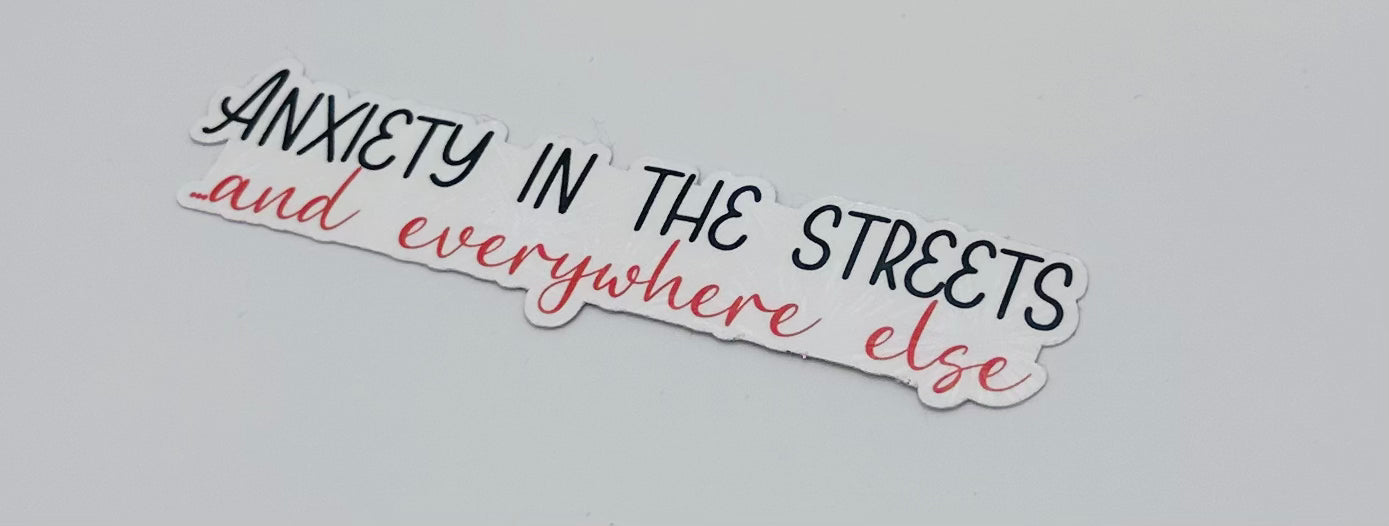 ANXIETY IN THE STREETS
...and everywhere else